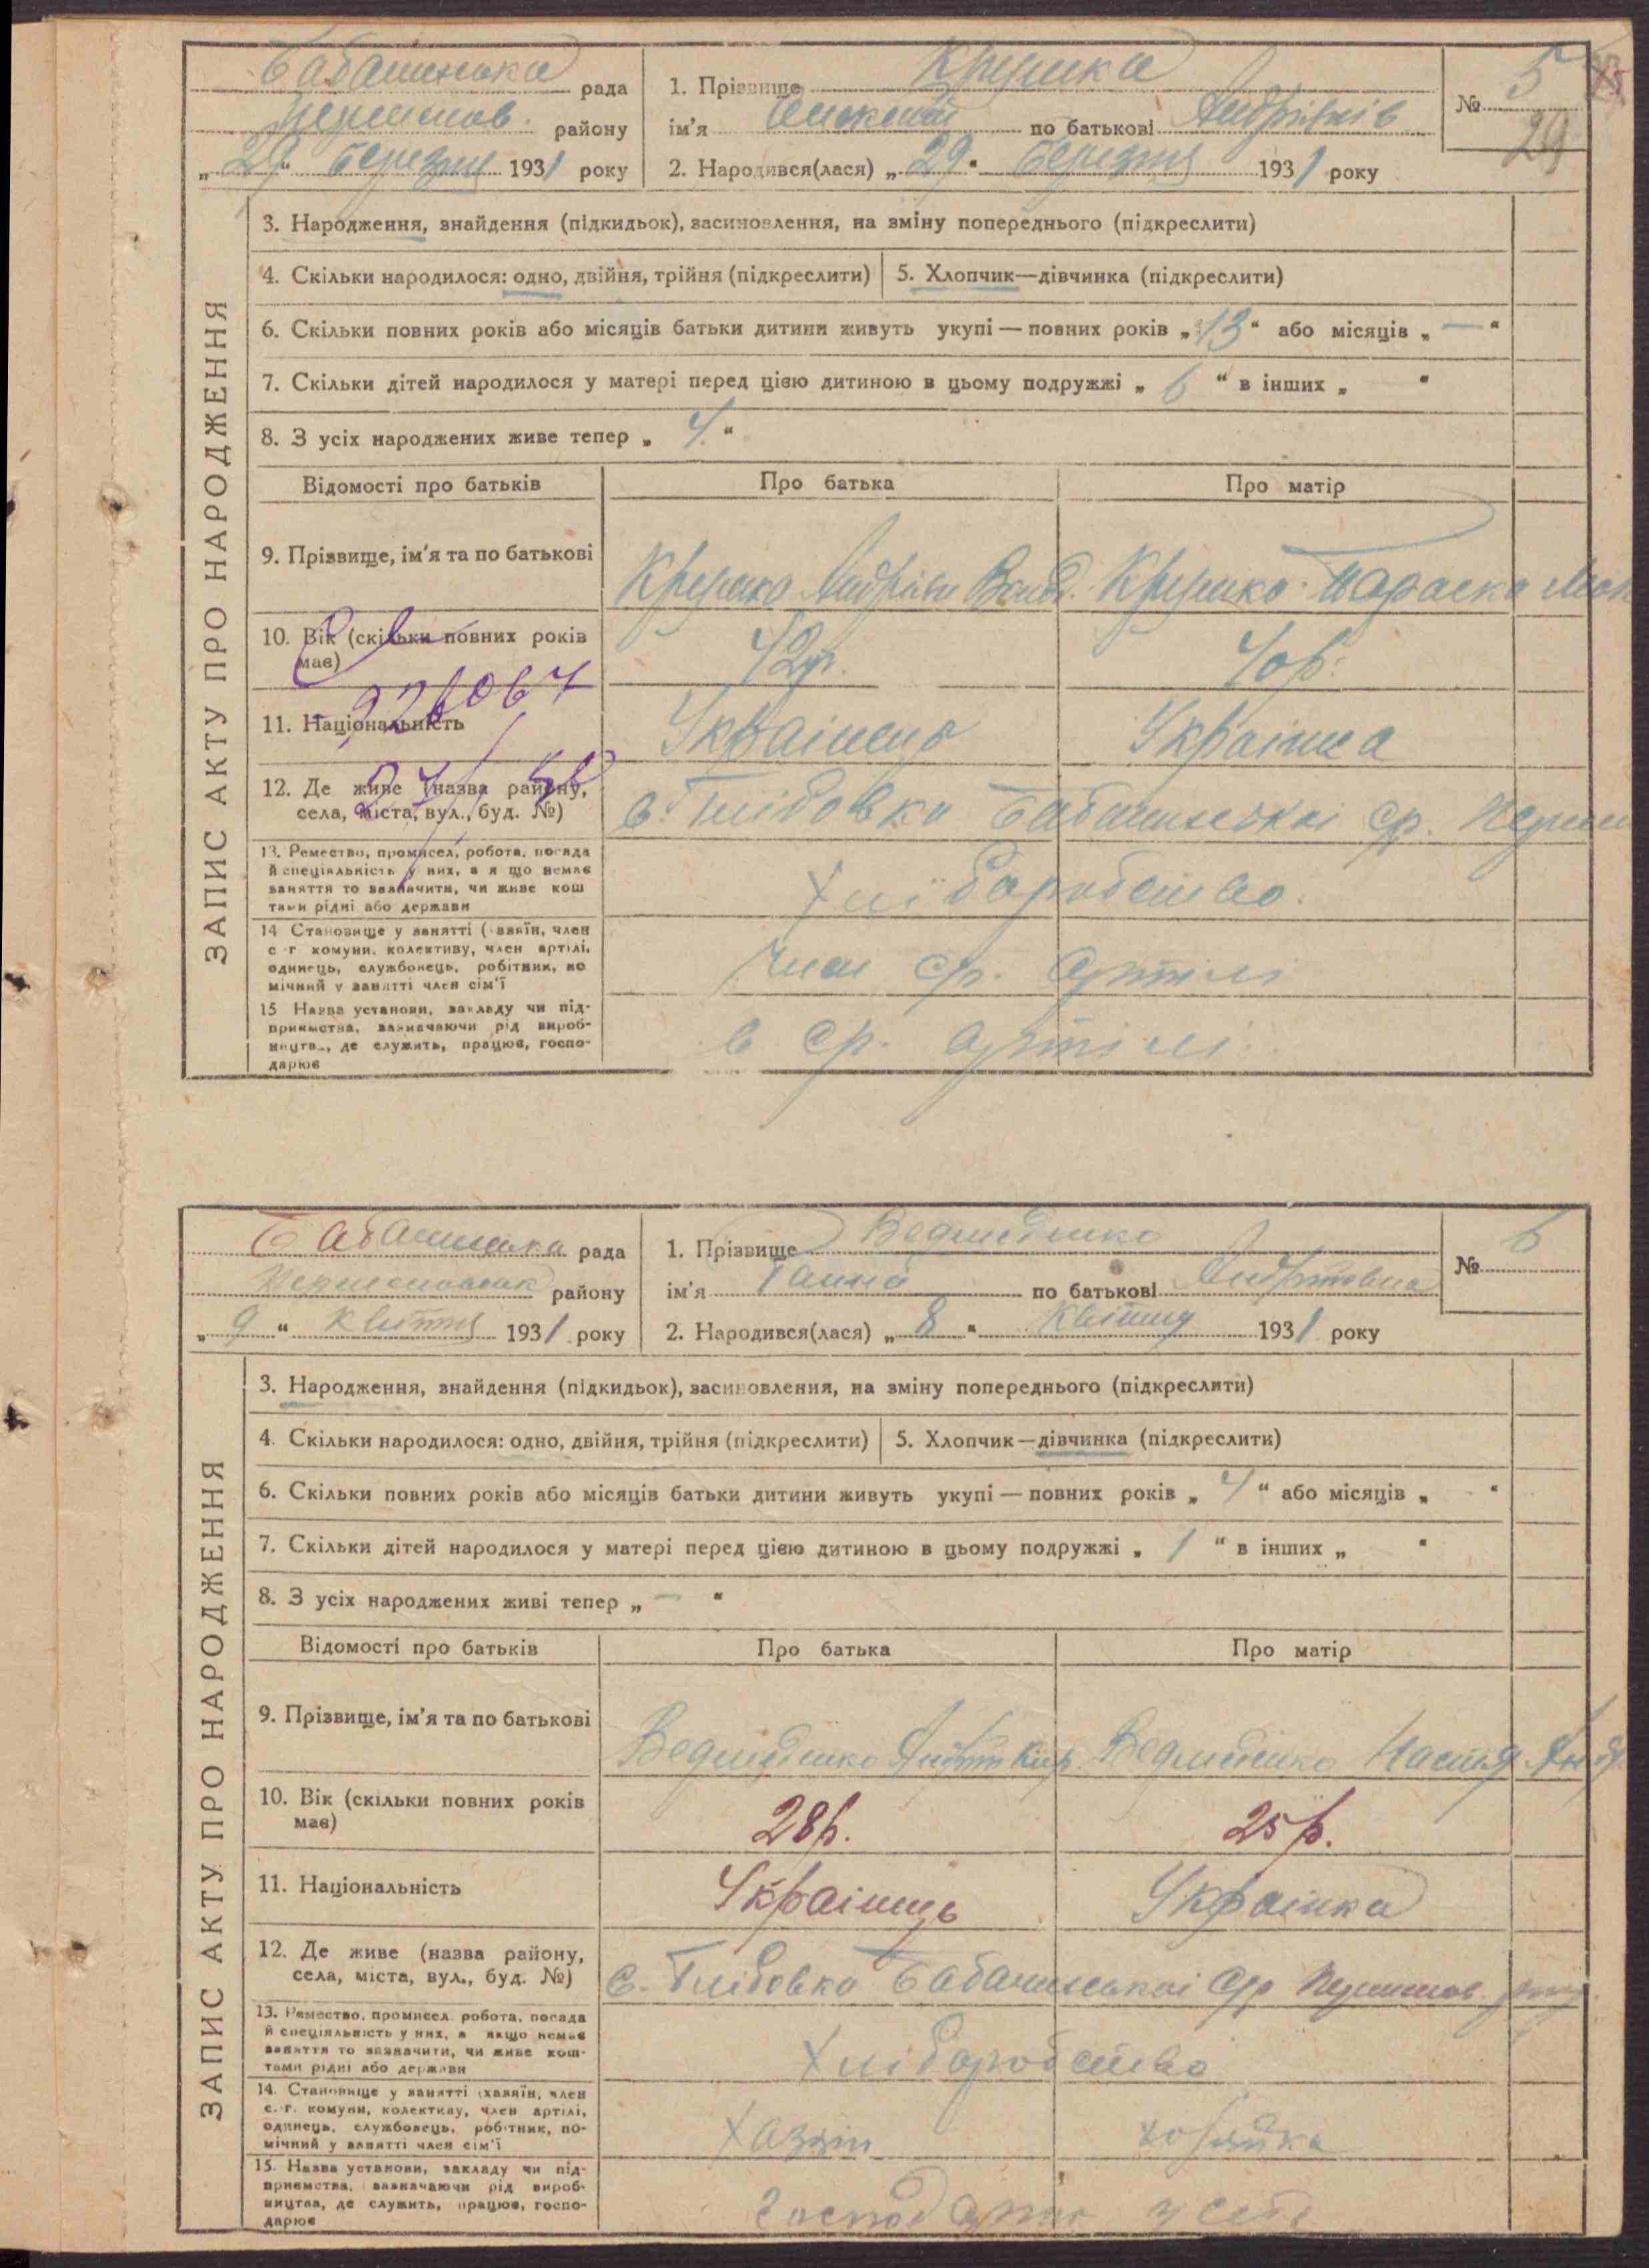 рада
району
„ 29 “ березня 1931 року
1. Прізвище
ім'я по батькові
2. Народився(лася) „ 29 “ березня 1931 року
№ 5
29
ЗАПИС АКТУ ПРО НАРОДЖЕННЯ
3. Народження, знайдення (підкидьок), засиновлення, на зміну попереднього (підкреслити)
4. Скільки народилося: одно, двійня, трійня (підкреслити)
5. Хлопчик—дівчинка (підкреслити)
6. Скільки повних років або місяців батьки дитини живуть укупі — повних років „ 13 “ або місяців „ — “
7. Скільки дітей народилося у матері перед цією дитиною в цьому подружжі „ 6 “ в інших „ “
8. З усіх народжених живе тепер „ 4 “
Відомості про батьків
Про батька
Про матір
9. Прізвище, ім'я та по батькові
Параска
10. Вік (скільки повних років
має)
42р.
40р.
11. Національність
Українець
Українка
12. Де живе (назва району,
села, міста, вул., буд. №)
с. Глібовка Бабчинської ср.
13. Ремество, промисел, робота, посада
й спеціяльність у них, а якщо немає
заняття то зазначити, чи живе кош
тами рідні або держави
Хліборобство
14 Становище у занятті (хазяїн, член
с.-г комуни, колективу, член артілі,
одинець, службовець, робітник, по
мічний у занятті член сім'ї
Член ср. артілі
15 Назва установи, закладу чи під-
приємства, зазначаючи рід вироб-
ництва, де служить, працює, госпо-
дарює
в ср. артілі
рада
району
„ 9 “ квітня 1931 року
1. Прізвище
ім'я Ганна по батькові
2. Народився(лася) „ 8 “ квітня 1931 року
№ 6
ЗАПИС АКТУ ПРО НАРОДЖЕННЯ
3. Народження, знайдення (підкидьок), засиновлення, на зміну попереднього (підкреслити)
4. Скільки народилося: одно, двійня, трійня (підкреслити)
5. Хлопчик—дівчинка (підкреслити)
6. Скільки повних років або місяців батьки дитини живуть укупі — повних років „ 4 “ або місяців „ “
7. Скільки дітей народилося у матері перед цією дитиною в цьому подружжі „ 1 “ в інших „ “
8. З усіх народжених живі тепер „ — “
Відомості про батьків
Про батька
Про матір
9. Прізвище, ім'я та по батькові
Настя
10. Вік (скільки повних років
має)
28р.
25р.
11. Національність
Українець
Українка
12. Де живе (назва району,
села, міста, вул., буд. №)
с. Глібовка Бабчинської ср
13. Ремество, промисел, робота, посада
й спеціяльність у них, а якщо немає
заняття то зазначити, чи живе кош-
тами рідні або держави
Хліборобство
14. Становище у занятті (хазяїн, член
с.-г. комуни, колективу, член артілі,
одинець, службовець, робітник, по-
мічний у занятті член сім'ї
Хазяїн
хозяйка
15. Назва установи, закладу чи під-
приємства, зазначаючи рід вироб-
ництва, де служить, працює, госпо-
дарює
у себе